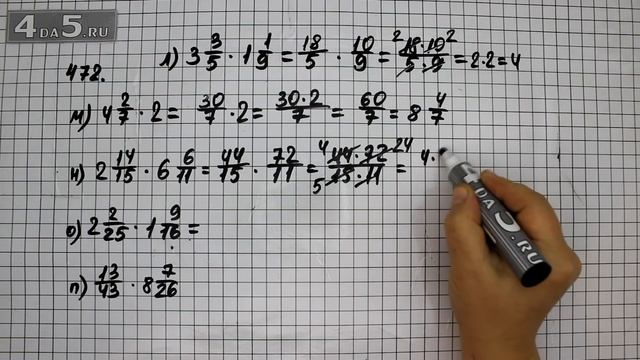 4DA5.RU
472.
л) 3 3/5 · 1 1/9 = 18/5 · 10/9 = 2 18·10 2/5·9 = 2·2 = 4
м) 4 2/7 · 2 = 30/7 · 2 = 30·2/7 = 60/7 = 8 4/7
н) 2 14/15 · 6 6/11 = 44/15 · 72/11 = 4 44·72 24/5 15·11 = 4·
о) 2 2/25 · 1 9/16 =
п) 13/43 · 8 7/26
4DA5.RU